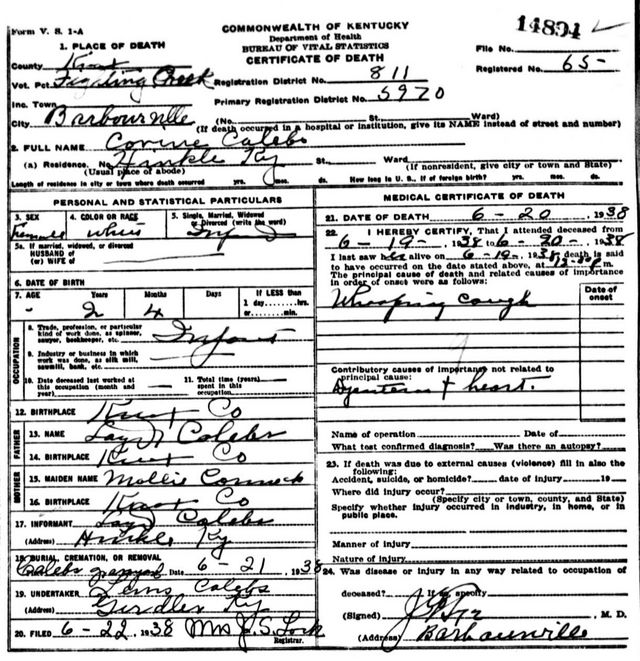 Form V. S. 1-A
COMMONWEALTH OF KENTUCKY
Department of Health
BUREAU OF VITAL STATISTICS
CERTIFICATE OF DEATH
14894
File No.
Registered No. 65-
1. PLACE OF DEATH
County Knox
Vot. Pct. Fighting Creek Registration District No. 811
Inc. Town Primary Registration District No. 5970
City Barbourville (No. St. Ward)
(If death occurred in a hospital or institution, give its NAME instead of street and number)
2. FULL NAME Corine Calebs
(a) Residence. No. Hinkle Ky St. Ward
(Usual place of abode) (If nonresident, give city or town and State)
Length of residence in city or town where death occurred yrs. mos. ds. How long in U. S., if of foreign birth? yrs. mos. ds.
PERSONAL AND STATISTICAL PARTICULARS
3. SEX 4. COLOR OR RACE 5. Single, Married, Widowed
or Divorced (write the word)
Female White
5a. If married, widowed, or divorced
HUSBAND of
(or) WIFE of
6. DATE OF BIRTH
7. AGE Years Months Days If LESS than
1 day, hrs.
or min.
- 2 4
OCCUPATION
8. Trade, profession, or particular
kind of work done, as spinner,
sawyer, bookkeeper, etc. Infant
9. Industry or business in which
work was done, as silk mill,
sawmill, bank, etc.
10. Date deceased last worked at
this occupation (month and
year)
11. Total time (years)
spent in this
occupation
12. BIRTHPLACE Knox Co
FATHER
13. NAME Calebs
14. BIRTHPLACE Knox Co
MOTHER
15. MAIDEN NAME Mollie
16. BIRTHPLACE Knox Co
17. INFORMANT Calebs
(Address) Hinkle Ky
18. BURIAL, CREMATION, OR REMOVAL
Calebs graveyard Date 6-21, 1938
19. UNDERTAKER Calebs
(Address) Girdler Ky
20. FILED 6-22, 1938 Mrs J. S. Lock
Registrar.
MEDICAL CERTIFICATE OF DEATH
21. DATE OF DEATH 6-20, 1938
22. I HEREBY CERTIFY, That I attended deceased from
6-19-, 1938 to 6-20-, 1938
I last saw her alive on 6-19-, 1938, death is said
to have occurred on the date stated above, at m.
The principal cause of death and related causes of importance
in order of onset were as follows:
Date of
onset
Whooping cough
Contributory causes of importance not related to
principal cause:
+ heart.
Name of operation Date of
What test confirmed diagnosis? Was there an autopsy?
23. If death was due to external causes (violence) fill in also the
following:
Accident, suicide, or homicide? date of injury 19
Where did injury occur?
(Specify city or town, county, and State)
Specify whether injury occurred in industry, in home, or in
public place.
Manner of injury
Nature of injury
24. Was disease or injury in any way related to occupation of
deceased? If so, specify
(Signed) M. D.
(Address) Barbourville